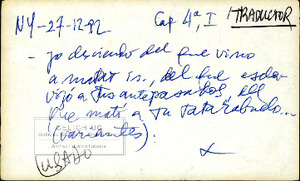 NY-27-12-92 Cap 4ª, I TRADUCTOR
- yo desciendo del que vino
a matar is, del que escla-
vizó a tus antepasados, del
que mató a tu tatarabuelo...
(variantes).
USADO